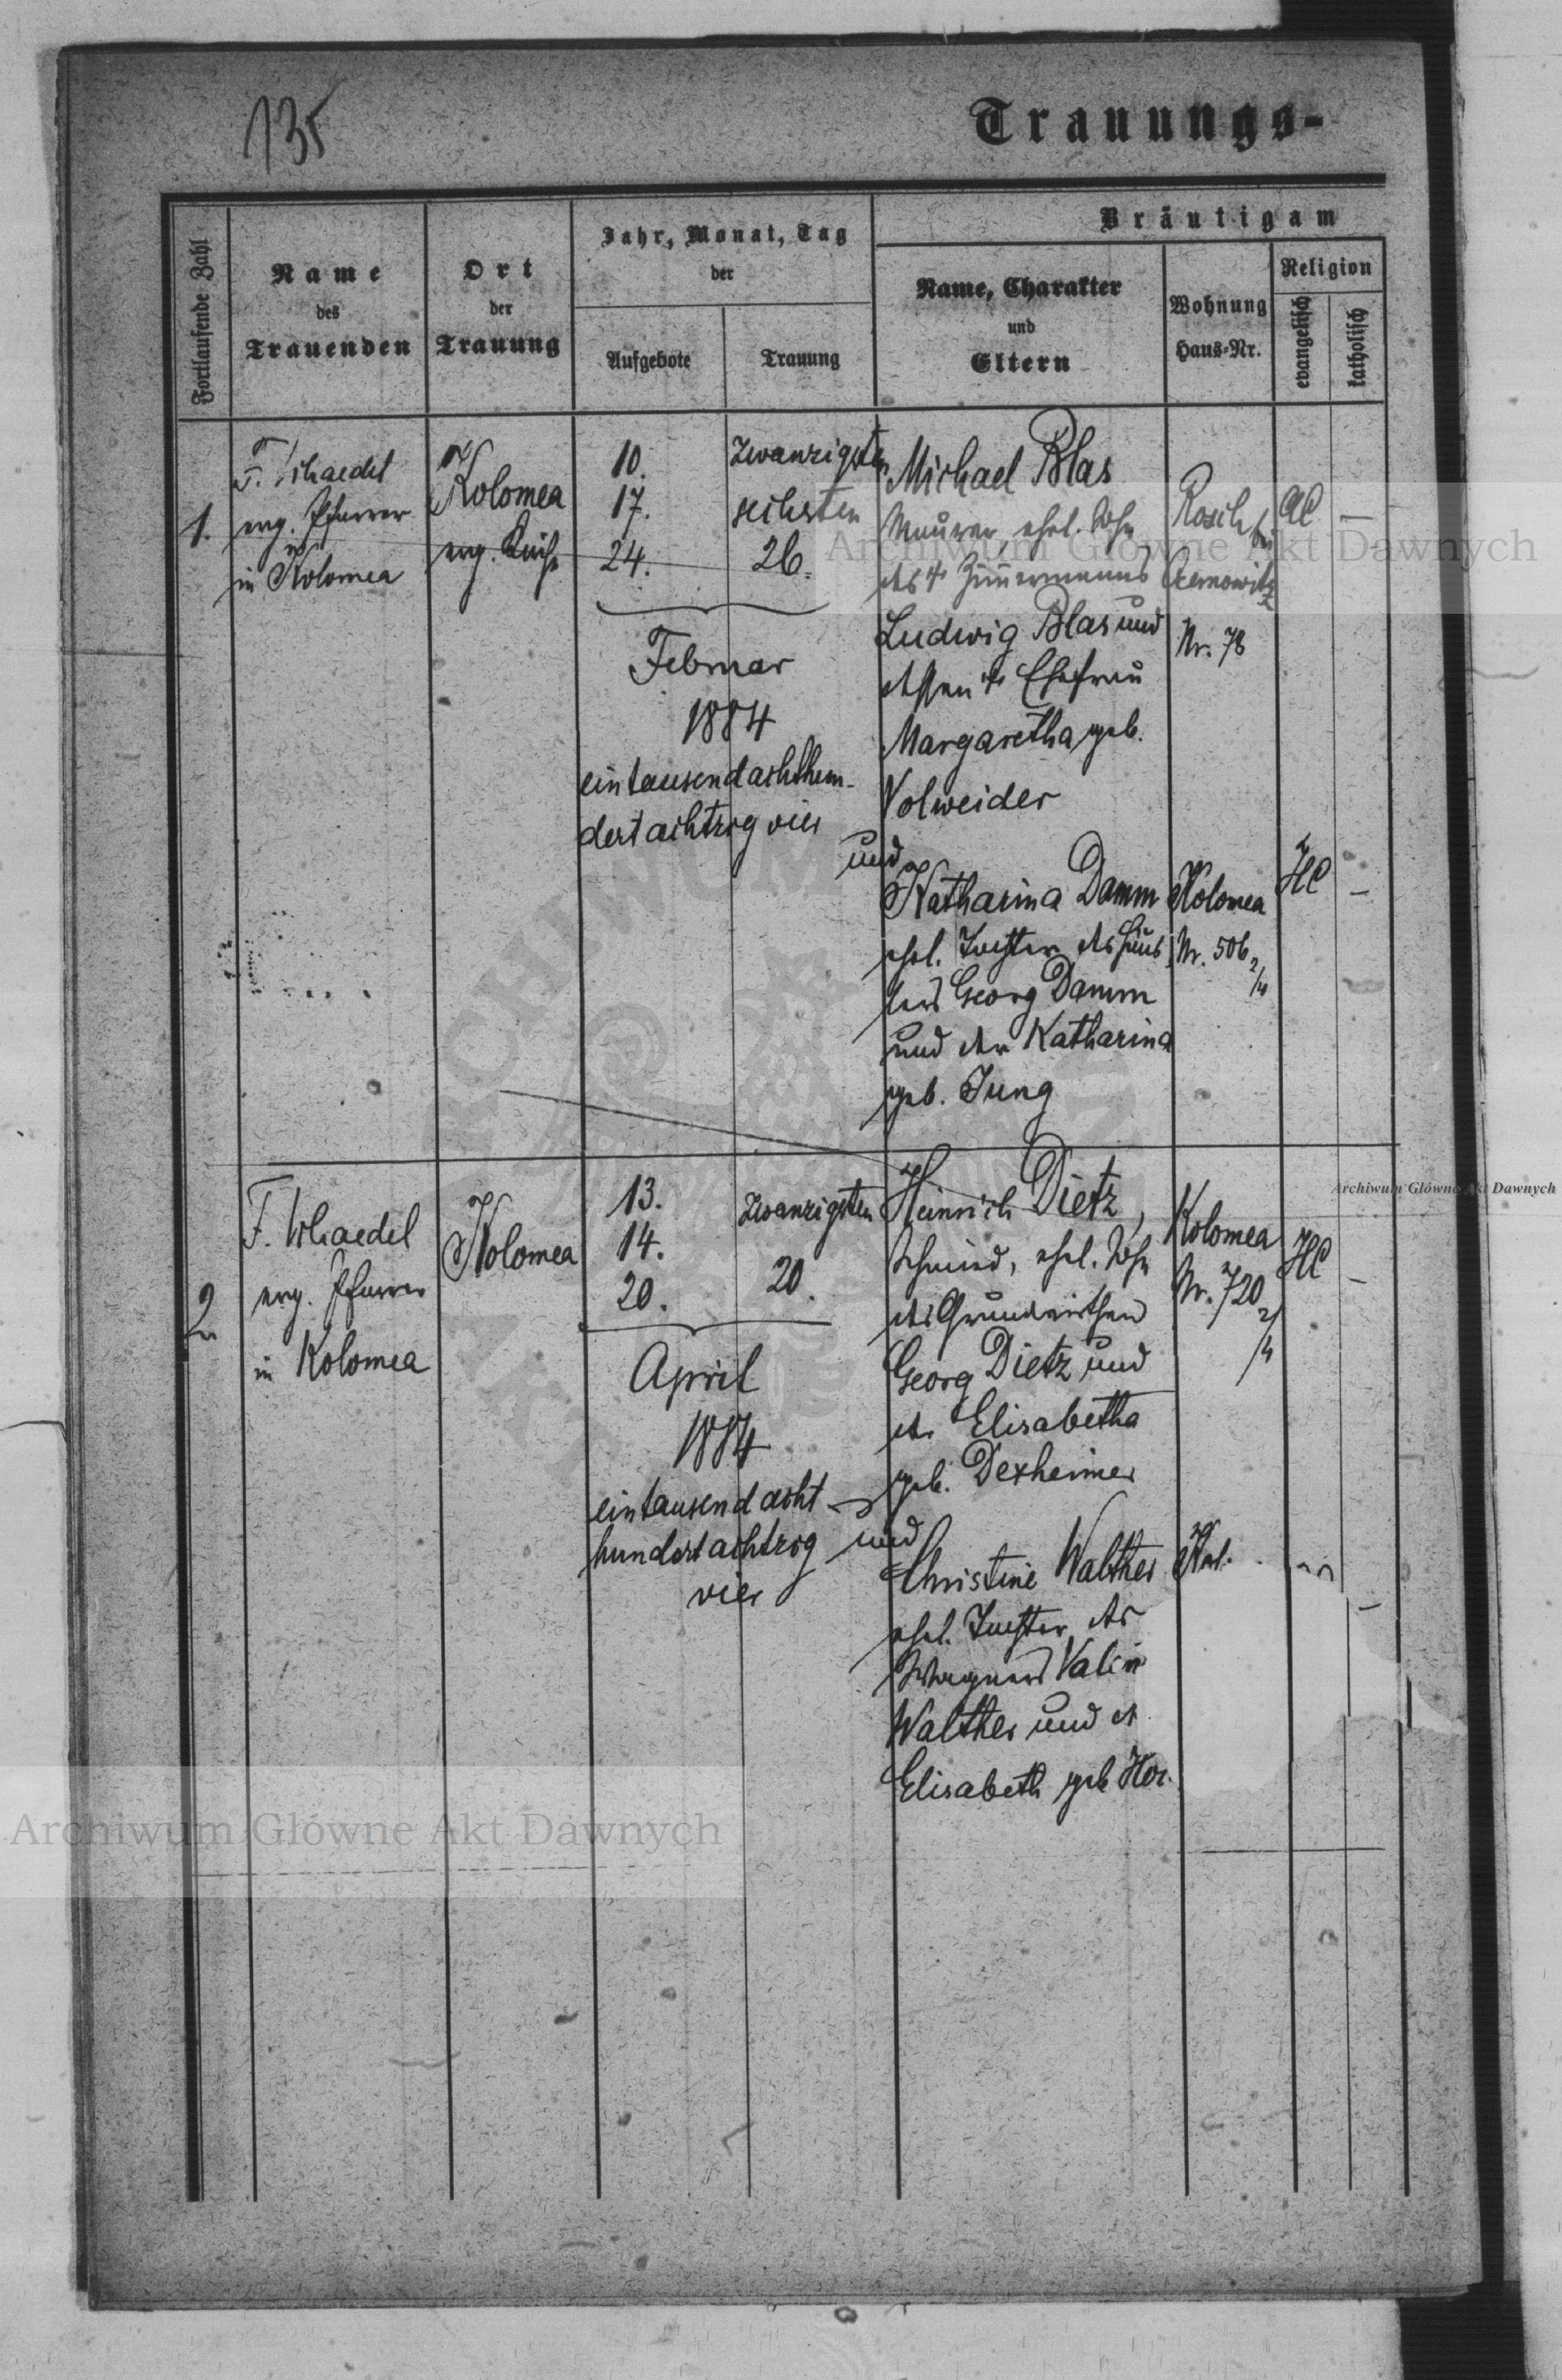 135
Trauungs-
Fortlaufende Zahl
Name
des
Trauenden
Ort
der
Trauung
Jahr, Monat, Tag
der
Aufgebote
Trauung
Bräutigam
Name, Charakter
und
Eltern
Wohnung
Haus-Nr.
Religion
evangelisch
katholisch
1.
F. Schaedel
evg. Pfarrer
in Kolomea
Kolomea
evg. Kirche
10.
17.
24.
zwanzigsten
sechsten
26.
Februar
1884
eintausendachthun-
dertachtzig vier
Michael Blas
Maurer, ehel. Sohn
des † Zimmermanns
Ludwig Blas und
dessen † Ehefrau
Margaretha geb.
Volweider
und
Katharina Damm
ehel. Tochter des
Georg Damm
und der Katharina
geb. Jung
Rosch bei
Czernowitz
Nr. 78
AC
—
Kolomea
Nr. 506 2/4
HC
—
2.
F. Schaedel
evg. Pfarrer
in Kolomea
Kolomea
13.
14.
20.
zwanzigsten
20.
April
1884
eintausendacht
hundertachtzig
vier
Heinrich Dietz,
Schmied, ehel. Sohn
des Grundwirthen
Georg Dietz und
der Elisabetha
geb. Dexheimer
und
Christine Walther
ehel. Tochter des
Wagners
Walther und
Elisabeth geb
Kolomea
Nr. 720 2/4
HC
—
—
Archiwum Główne Akt Dawnych
Archiwum Główne Akt Dawnych
Archiwum Główne Akt Dawnych